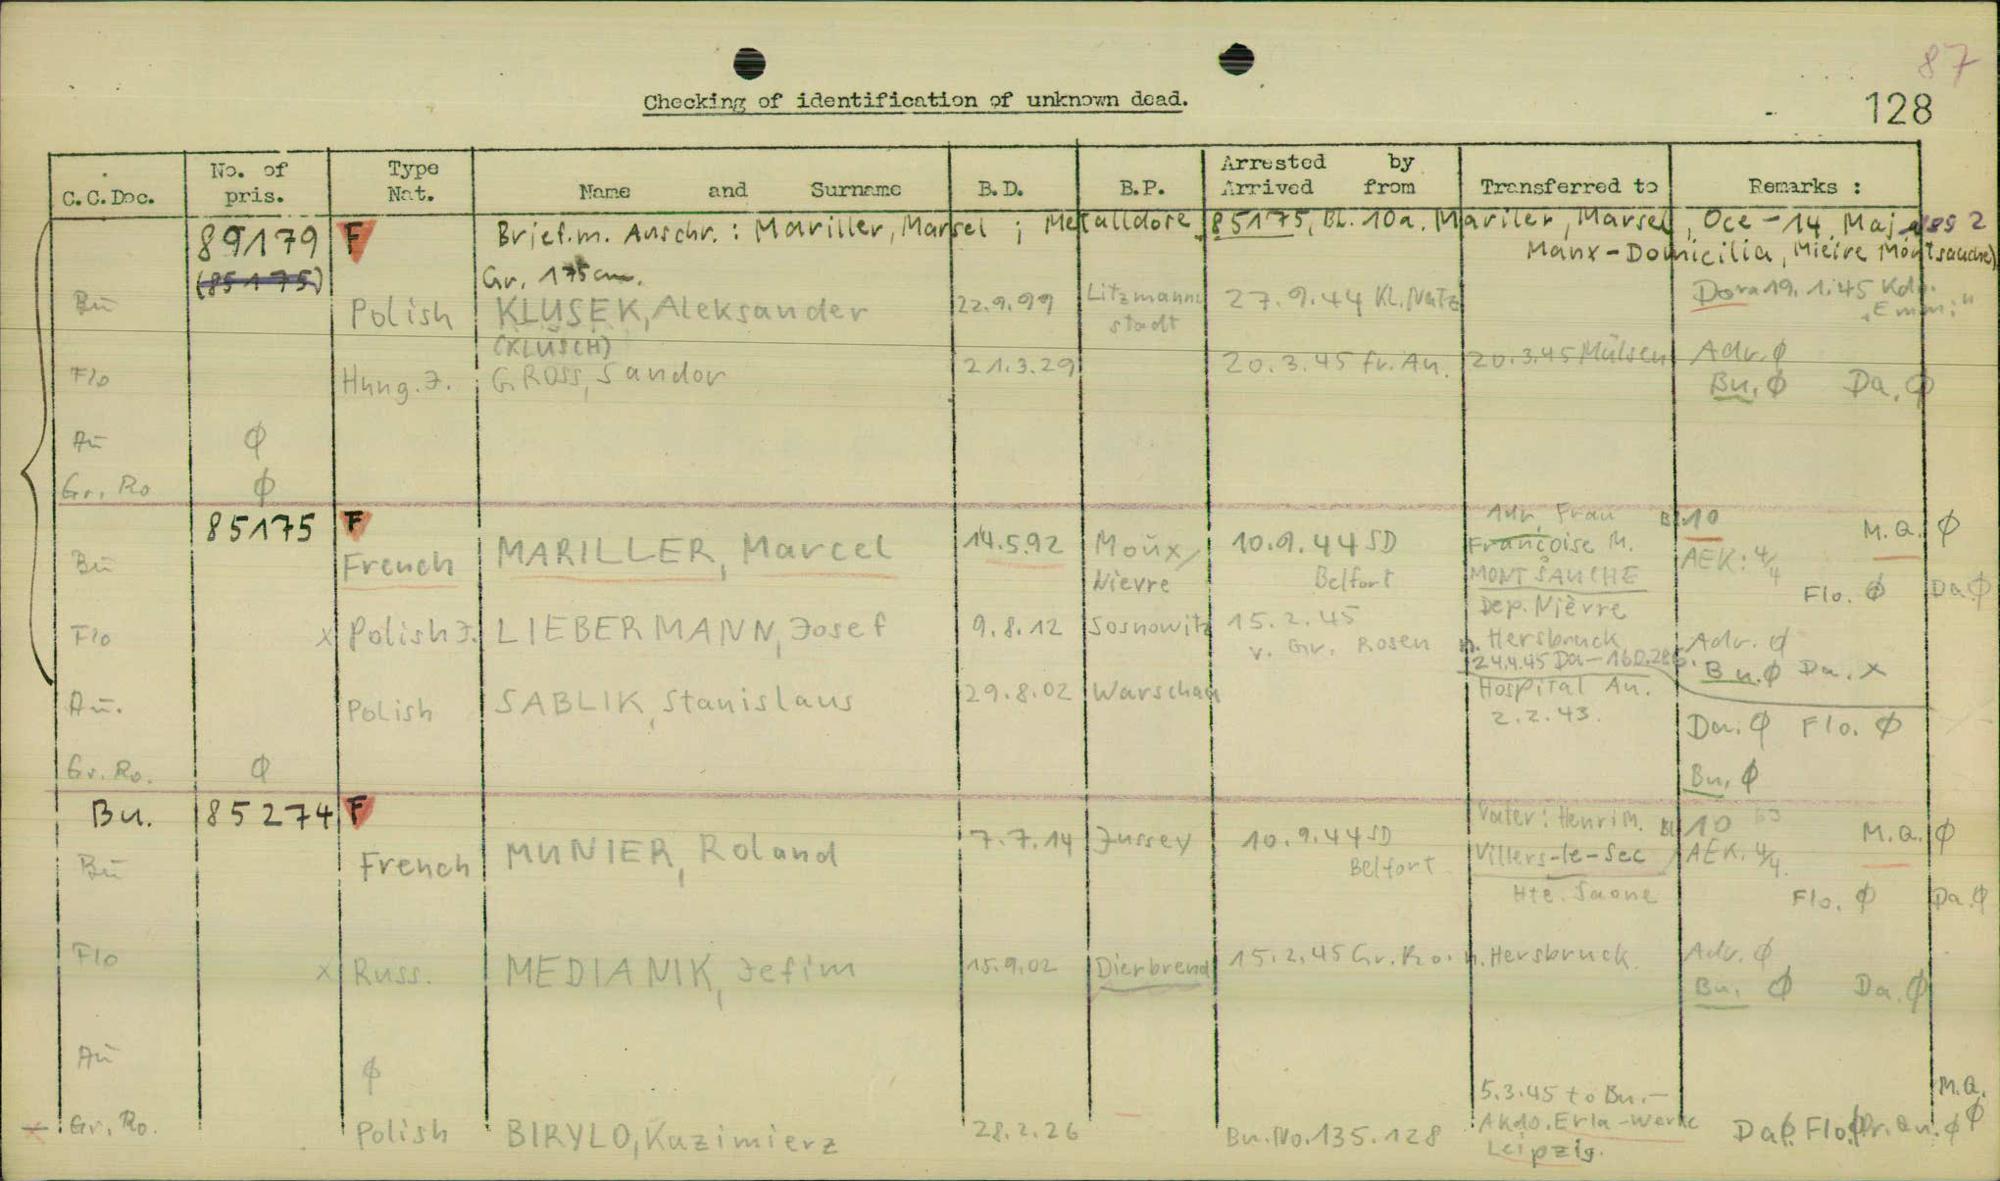 87
128
Checking of identification of unknown dead.
C.C.Doc. No. of pris. Type Nat. Name and Surname B.D. B.P. Arrested by Arrived from Transferred to Remarks :
89179 F Brief.m. Anschr. : Mariller, Marsel ; Metalldose 85175, Bl. 10a. Mariler, Marsel, Oce - 14. Maj 1892
Manx - Domicilia, Mieire Montsauche)
(85175) Gr. 175 cm.
Bu Polish KLUSEK, Aleksander 22.9.99 Litzmannstadt 27.9.44 KL.Natz Dora 19.1.45 Kdo. "Emmi"
(KLUSCH)
Flo Hung. J. GROSS, Sandor 21.3.29 20.3.45 fr. Au. 20.3.45 Mülsen Adr. Ø
Bu. Ø Da. Ø
Au Ø
Gr. Ro Ø
85175 F Adr. Frau Bl 10 M.Q. Ø
Bu French MARILLER, Marcel 14.5.92 Moux/ 10.9.44 SD Françoise M. AEK: 4/4
Nievre Belfort MONTSAUCHE Flo. Ø Da Ø
Dep. Nièvre
Flo x Polish J. LIEBERMANN, Josef 9.8.12 Sosnowitz 15.2.45 n. Hersbruck Adr. Ø
v. Gr. Rosen 24.4.45 Da - Bu. Ø Da. x
Au. Polish SABLIK, Stanislaus 29.8.02 Warschau Hospital Au.
2.2.43. Da. Ø Flo. Ø
Gr. Ro. Ø Bu. Ø
Bu. 85274 F Vater: Henri M. Bl 10 M.Q. Ø
Bu French MUNIER, Roland 7.7.14 Jussey 10.9.44 SD Villers-le-Sec AEK. 4/4.
Belfort Hte. Saone Flo. Ø Da. Ø
Flo x Russ. MEDIANIK, Jefim 15.9.02 Dierbrend 15.2.45 Gr. Ro. n. Hersbruck. Adr. Ø
Bu. Ø Da. Ø
Au Ø
5.3.45 to Bu. - M.Q. Ø
Gr. Ro. Polish BIRYLO, Kazimierz 28.2.26 Bu. No. 135.128 AKdo. Erla-Werke Da Ø Flo. Ø Ø
Leipzig.